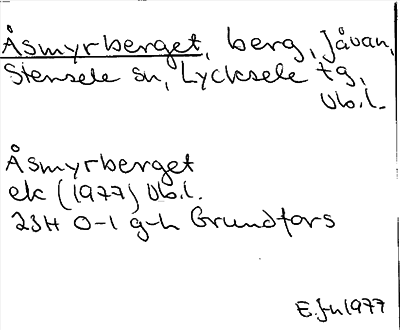 Åsmyrberget, berg, Jåvan,
Stensele sn, Lycksele tg,
Vb.l.
Åsmyrberget
ek (1977) Vb.l.
23H 0-1 g-h Grundfors
E.Jn 1977